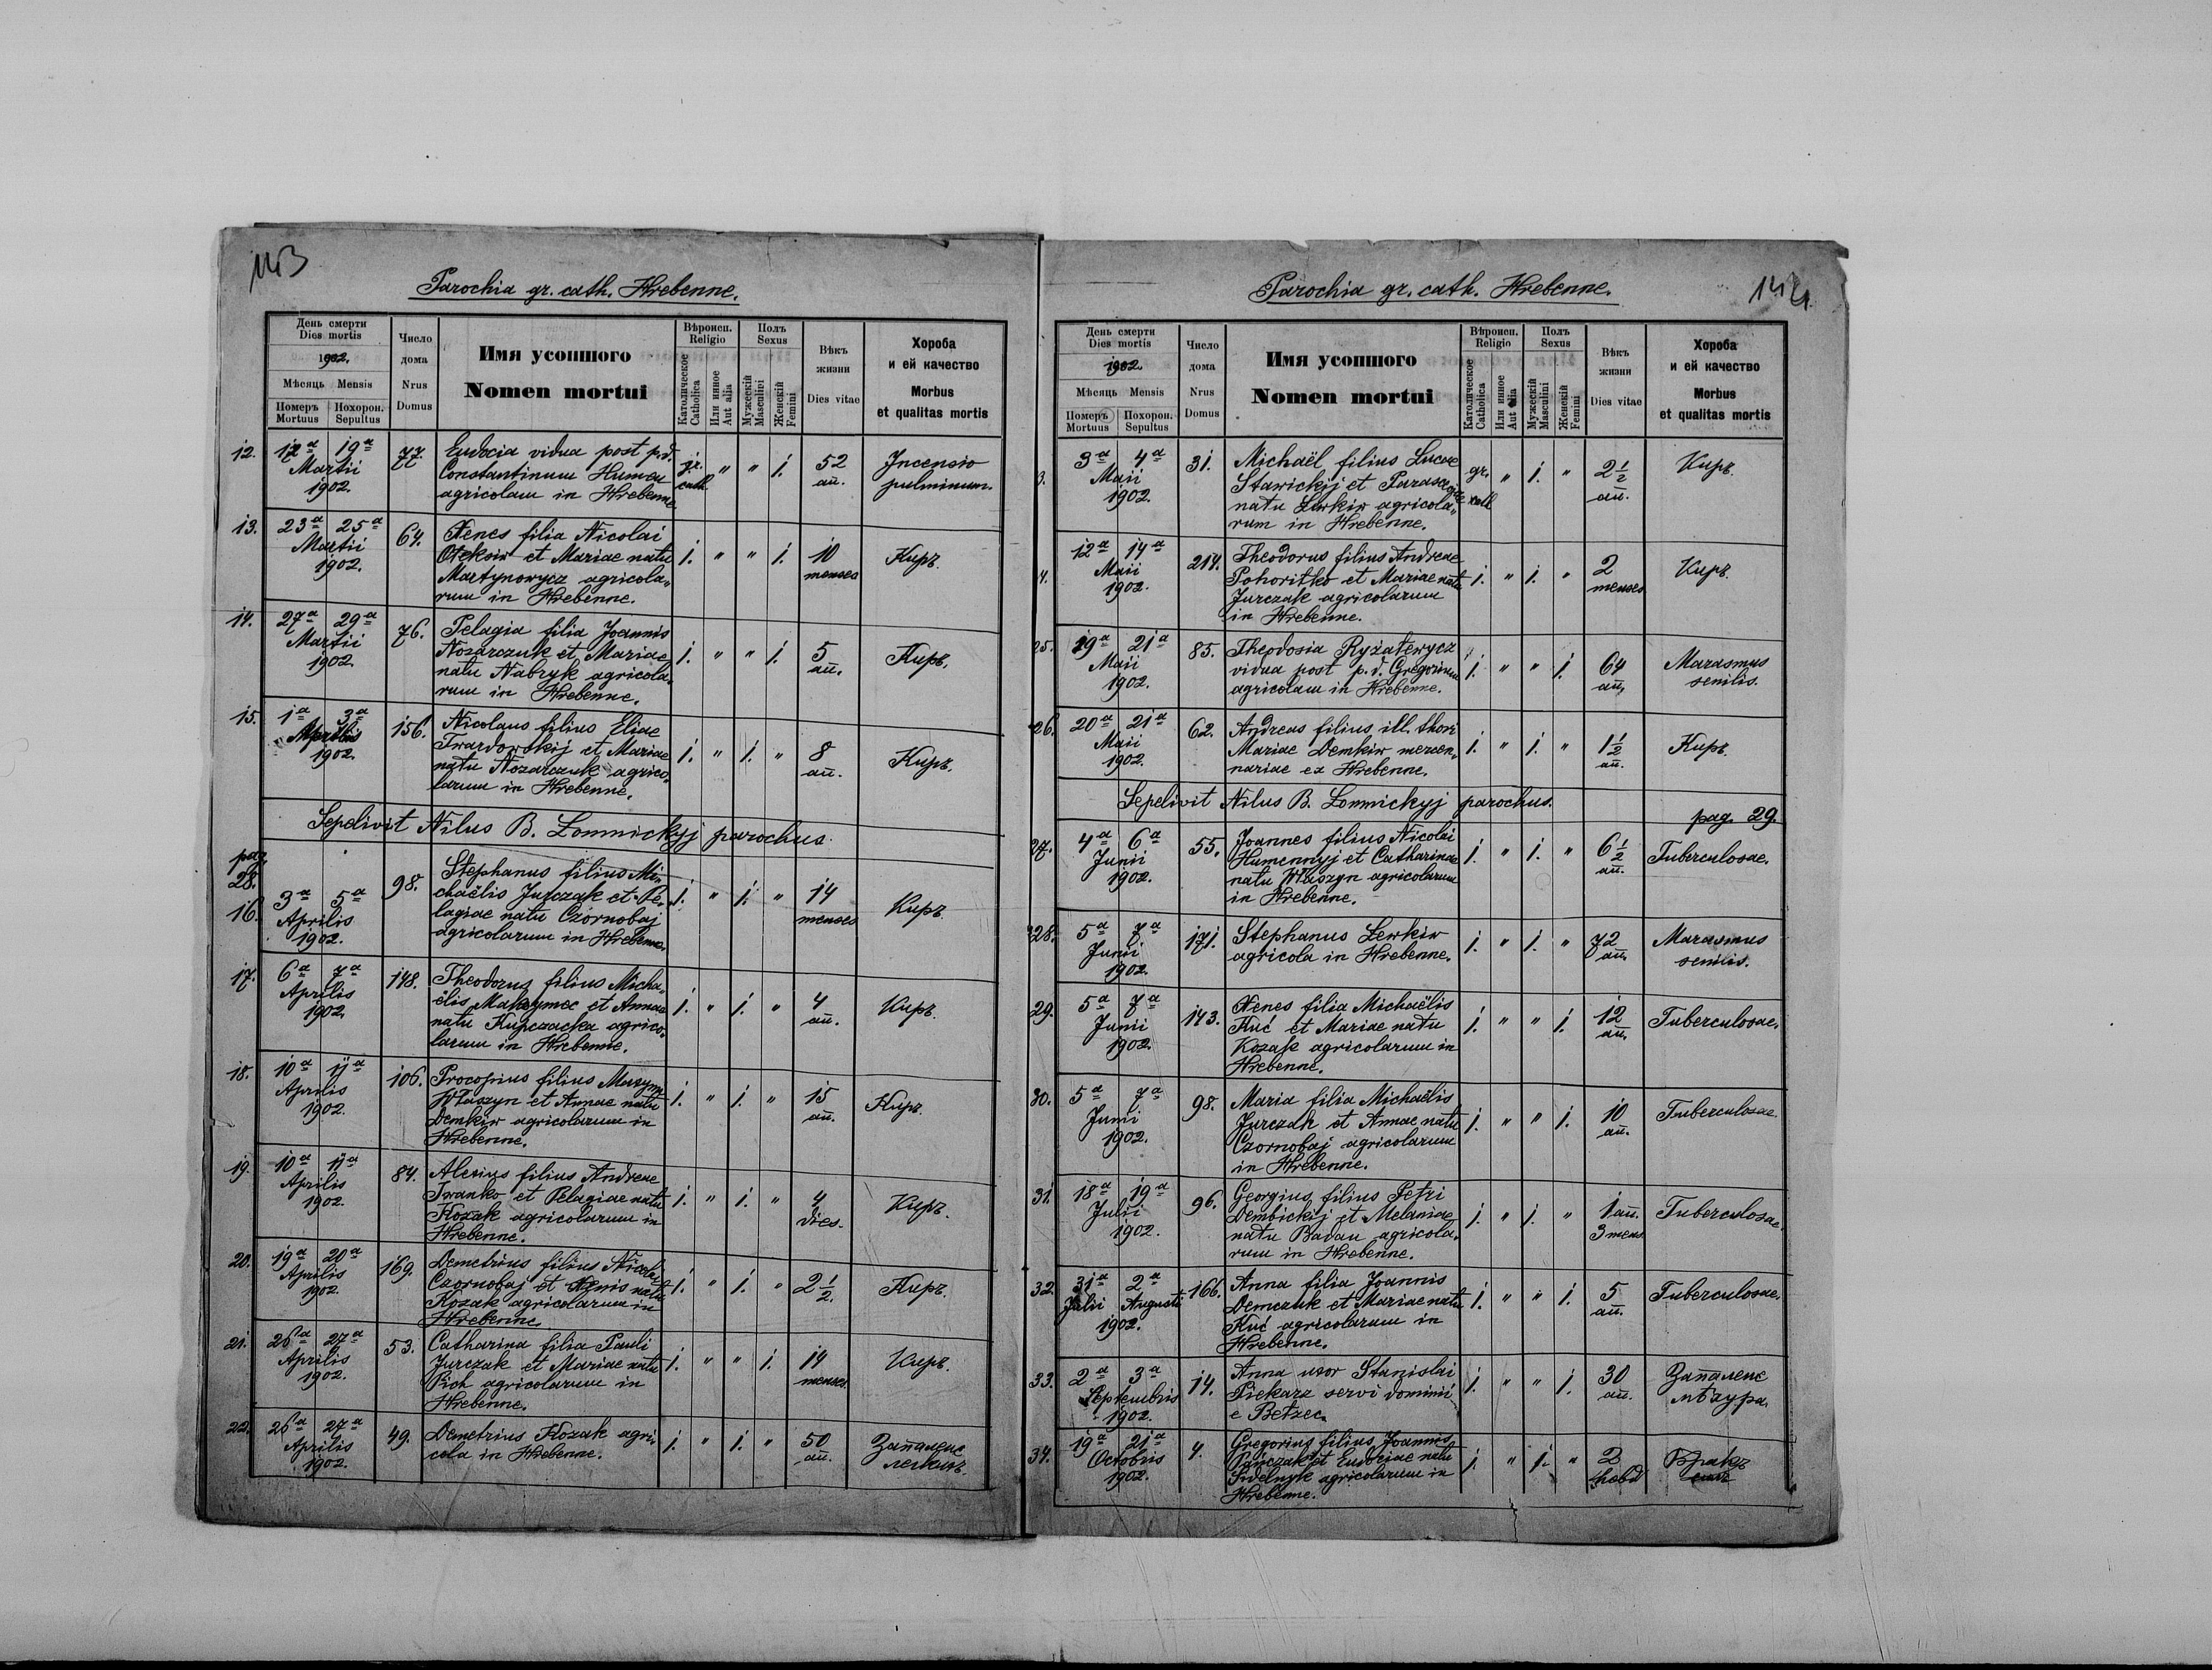 143
Parochia gr. cath. Hrebenne.
День смерти
Dies mortis
1902.
Мѣсяць Mensis
Померъ Mortuus
Похорон. Sepultus
Число дома
Nrus Domus
Имя усопшого
Nomen mortui
Вѣроисп.
Religio
Католическое Catholica
Или инное Aut alia
Полъ
Sexus
Мужескій Masculini
Женскій Femini
Вѣкъ жизни
Dies vitae
Хороба
и ей качество
Morbus
et qualitas mortis
12. 17ª 19ª 77. Eudocia vidua post p.d. gr. " " 1. 52 Incensio
Martii Constantinum Humen cath. an. pulminum.
1902. agricolam in Hrebenne.
13. 23ª 25ª 64. Xenes filia Nicolai
Martii Oteksiw et Mariae natu 1. " " 1. 10 Киръ.
1902. Martynowycz agricola„ menses
rum in Hrebenne.
14. 27ª 29ª 76. Pelagia filia Joannis
Martii Nozarczuk et Mariae 1. " " 1. 5 Киръ.
1902. natu Nabryk agricola„ an.
rum in Hrebenne.
15. 1ª 3ª 156. Nicolaus filius Eliae
Aprilis Twardowskij et Mariae 1. " 1. " 8 Киръ.
1902. natu Nozarczuk agrico„ an.
larum in Hrebenne.
Sepelivit Nilus B. Lomnickyj parochus.
pag. 28.
16. 3ª 5ª 98. Stephanus filius Mi„
Aprilis chaëlis Jurczak et Pe„ 1. " 1. " 14 Киръ.
1902. lagiae natu Czornobaj menses
agricolarum in Hrebenne.
17. 6ª 7ª 148. Theodorus filius Micha„
Aprilis ëlis Maksymec et Annae 1. " 1. " 4 Киръ.
1902. natu Kupczacka agrico„ an.
larum in Hrebenne.
18. 10ª 11ª 106. Procopius filius Maxym
Aprilis Właszyn et Annae natu 1. " 1. " 15 Киръ.
1902. Demkiw agricolarum in an.
Hrebenne.
19. 10ª 11ª 84. Alexius filius Andreae
Aprilis Iwanko et Pelagiae natu 1. " 1. " 4 Киръ.
1902. Kozak agricolarum in dies.
Hrebenne.
20. 19ª 20ª 169. Demetrius filius Nicolai
Aprilis Czornobaj et Xenis natu 1. " 1. " 2 1/2. Киръ.
1902. Kozak agricolarum in
Hrebenne.
21. 26ª 27ª 53. Catharina filia Pauli
Aprilis Jurczak et Mariae natu 1. " " 1. 14 Киръ.
1902. Pich agricolarum in menses.
Hrebenne.
22. 26ª 27ª 49. Demetrius Kozak agri„ 1. " 1. " 50 Запаленє
Aprilis cola in Hrebenne. an. легкихъ.
1902.
144
Parochia gr. cath. Hrebenne.
День смерти
Dies mortis
1902.
Мѣсяць Mensis
Померъ Mortuus
Похорон. Sepultus
Число дома
Nrus Domus
Имя усопшого
Nomen mortui
Вѣроисп.
Religio
Католическое Catholica
Или инное Aut alia
Полъ
Sexus
Мужескій Masculini
Женскій Femini
Вѣкъ жизни
Dies vitae
Хороба
и ей качество
Morbus
et qualitas mortis
3. 3ª 4ª 31. Michaël filius Lucae
Maii Stawickij et Parasceviae gr. " 1. " 2 1/2 Киръ.
1902. natu Lewkiw agricola„ cath an.
rum in Hrebenne.
4. 12ª 14ª 214. Theodorus filius Andreae
Maii Pohoritko et Mariae natu 1. " 1. " 2 Киръ.
1902. Jurczak agricolarum menses
in Hrebenne.
25. 19ª 21ª 85. Theodosia Ryżatewycz
Maii vidua post p.d. Gregorium 1. " " 1. 64 Marasmus
1902. agricolam in Hrebenne. an. senilis.
26. 20ª 21ª 62. Andreas filius ill. thori
Maii Mariae Demkiw mercen„ 1. " 1. " 1 1/2 Киръ.
1902. nariae ex Hrebenne. an.
Sepelivit Nilus B. Lomnickyj parochus.
pag. 29.
27. 4ª 6ª 55. Joannes filius Nicolai
Junii Humennyj et Catharinae 1. " 1. " 6 1/2 Tuberculosae.
1902. natu Właszyn agricolarum an.
in Hrebenne.
328. 5ª 7ª 171. Stephanus Lewkiw 1. " 1. " 72 Marasmus
Junii agricola in Hrebenne. an. senilis.
1902.
29. 5ª 7ª 143. Xenes filia Michaëlis
Junii Kuć et Mariae natu 1. " " 1. 12 Tuberculosae.
1902. Kozak agricolarum in an.
Hrebenne.
30. 5ª 7ª 98. Maria filia Michaëlis
Junii Jurczak et Annae natu 1. " " 1. 10 Tuberculosae.
1902. Czornobaj agricolarum an.
in Hrebenne.
31. 18ª 19ª 96. Georgius filius Petri
Julii Dembickij et Melaniae 1. " 1. " 1 an. Tuberculosae.
1902. natu Badan agricola„ 3 mens
rum in Hrebenne.
32. 31ª 2ª 166. Anna filia Joannis
Julii Augusti Demczuk et Mariae natu 1. " " 1. 5 Tuberculosae.
1902. Kuć agricolarum in an.
Hrebenne.
33. 2ª 3ª 14. Anna uxor Stanislai
Septembris Piekarz servi dominii 1. " " 1. 30 Запаленє
1902. e Bełzec. an. мѣхура.
34. 19ª 21ª 4. Gregorius filius Joannis
Octobris et Eudociae natu 1. " 1. " 2 Бракъ
1902. Sidelnyk agricolarum in hebd
Hrebenne.